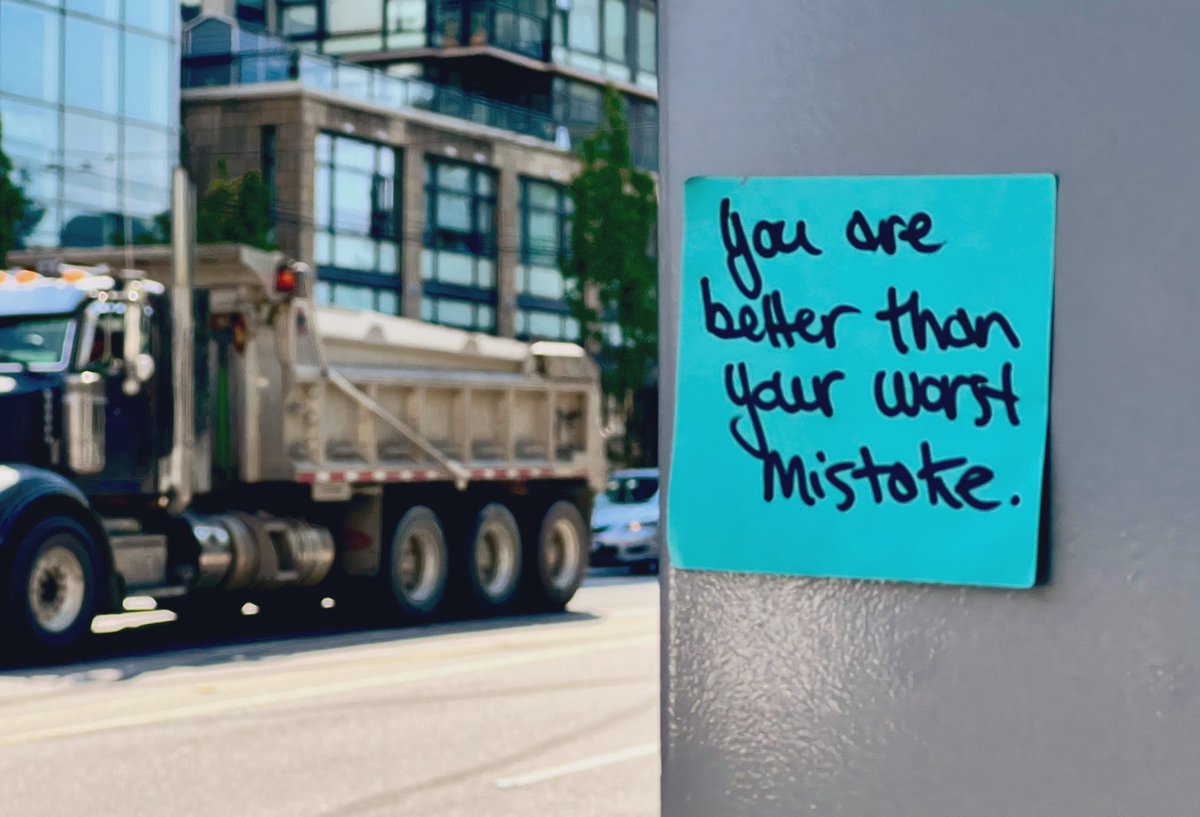 you are
better than
your worst
mistake.